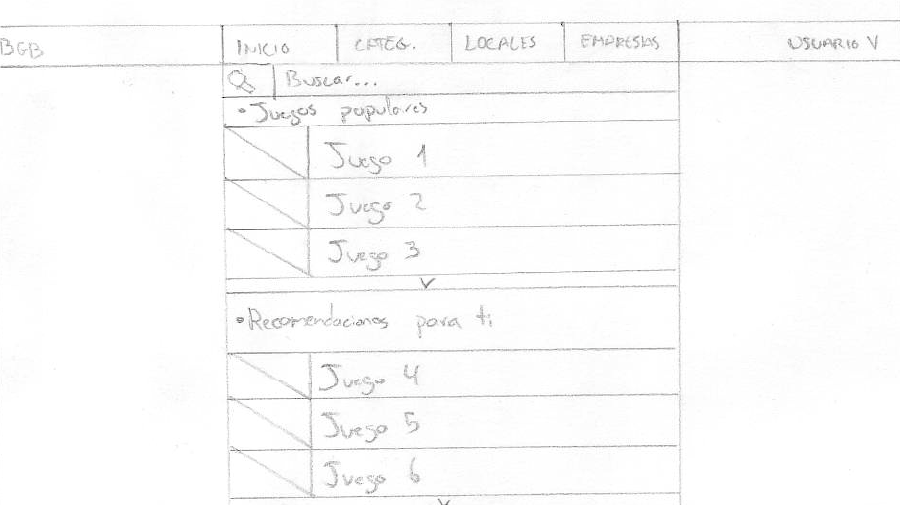 BGB INICIO CATEG. LOCALES EMPRESAS USUARIO V
Buscar...
• Juegos populares
Juego 1
Juego 2
Juego 3
V
• Recomendaciones para ti
Juego 4
Juego 5
Juego 6
V